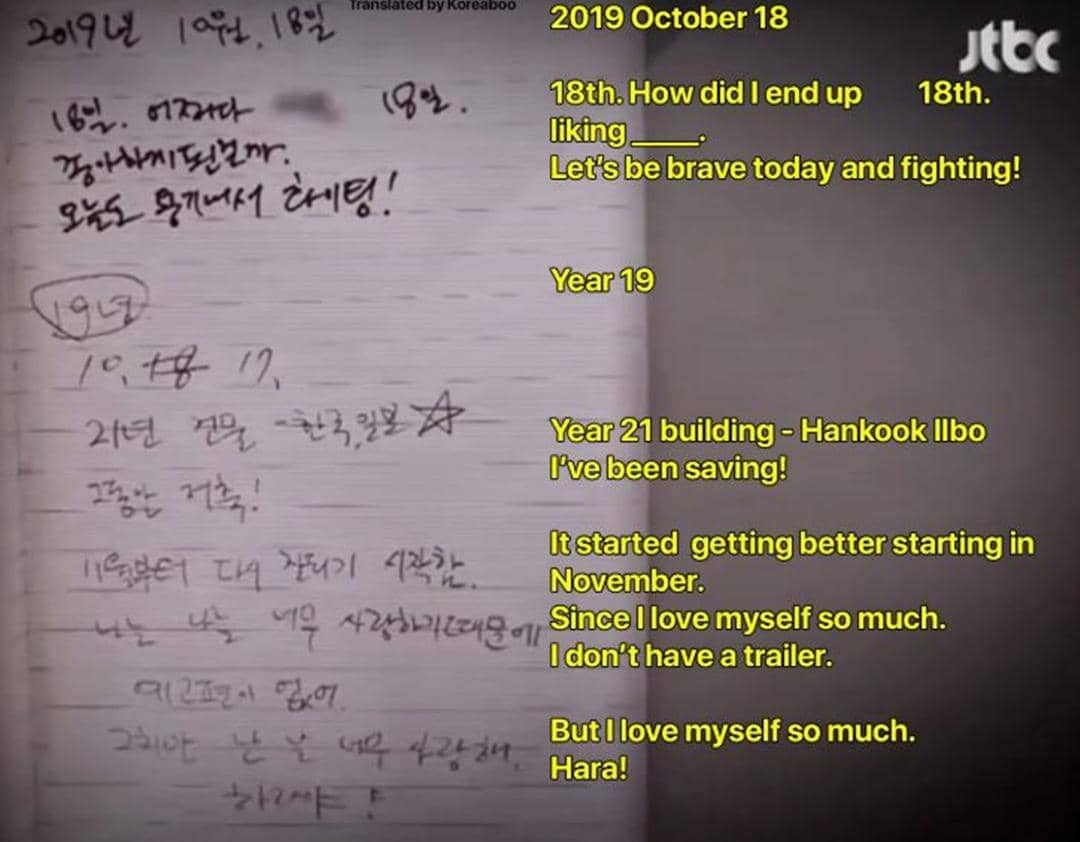 Translated by Koreaboo
jtbc
2019년 10월. 18일
18일. 어쩌다 18일.
좋아하게 된걸까.
오늘도 용기내서 화이팅!
19년
10, 17,
21년 건물 - 한국, 일본 ☆
그동안 저축!
11월부터 다 잘되기 시작함.
나는 나를 너무 사랑하기 때문에
예고편이 없어.
그치만 난 날 너무 사랑해.
하라야!
2019 October 18
18th. How did I end up 18th.
liking ____.
Let's be brave today and fighting!
Year 19
Year 21 building - Hankook Ilbo
I've been saving!
It started getting better starting in
November.
Since I love myself so much.
I don't have a trailer.
But I love myself so much.
Hara!